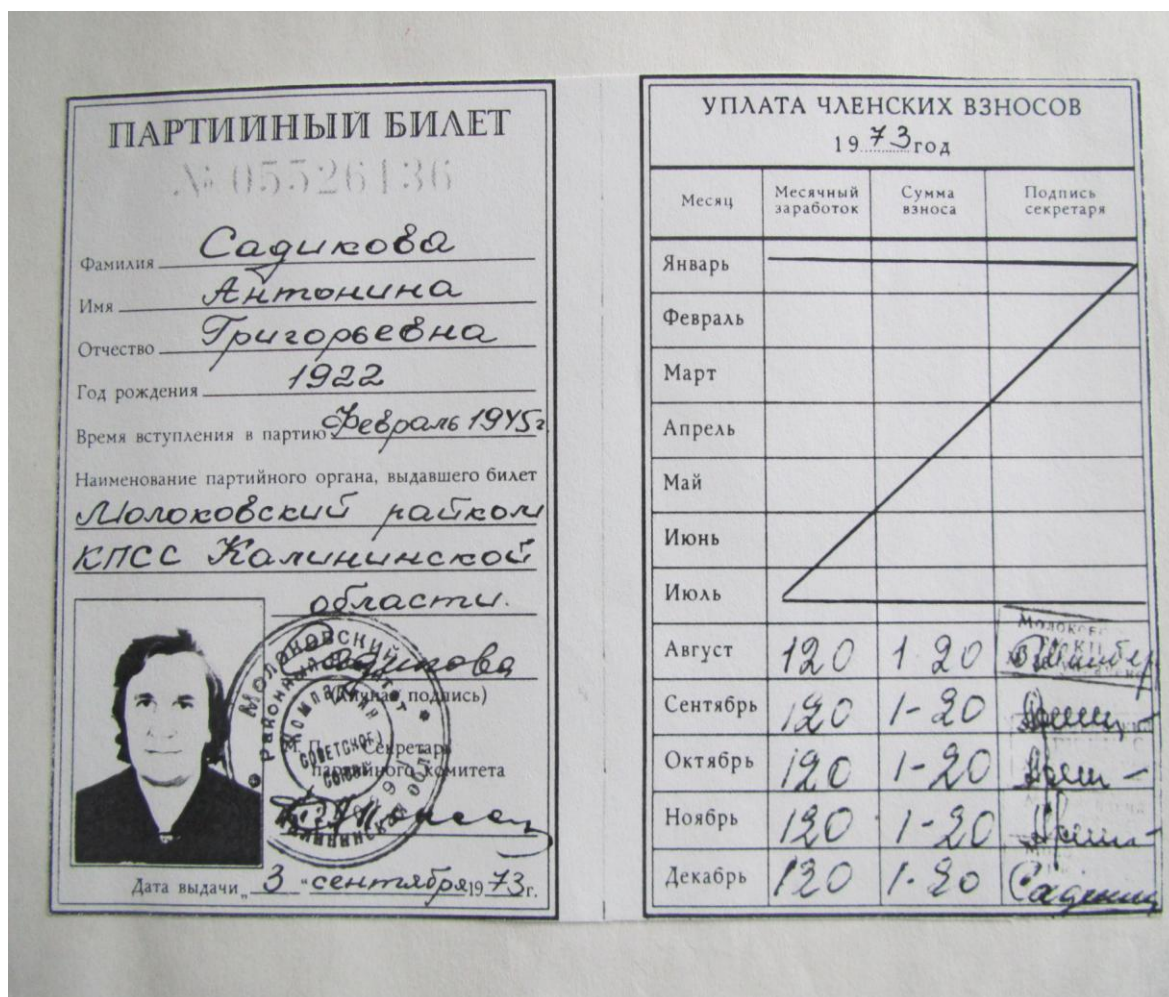 ПАРТИЙНЫЙ БИЛЕТ
№ 05526136
Фамилия Садикова
Имя Антонина
Отчество Григорьевна
Год рождения 1922
Время вступления в партию Февраль 1945г.
Наименование партийного органа, выдавшего билет
Молоковский райком
КПСС Калининской
области.
Садикова
(Личная подпись)
Секретарь
партийного комитета
Дата выдачи „3“ сентября 1973г.
УПЛАТА ЧЛЕНСКИХ ВЗНОСОВ
1973 год
Месяц Месячный заработок Сумма взноса Подпись секретаря
Январь
Февраль
Март
Апрель
Май
Июнь
Июль
Август 120 1-20
Сентябрь 120 1-20
Октябрь 120 1-20
Ноябрь 120 1-20
Декабрь 120 1-20